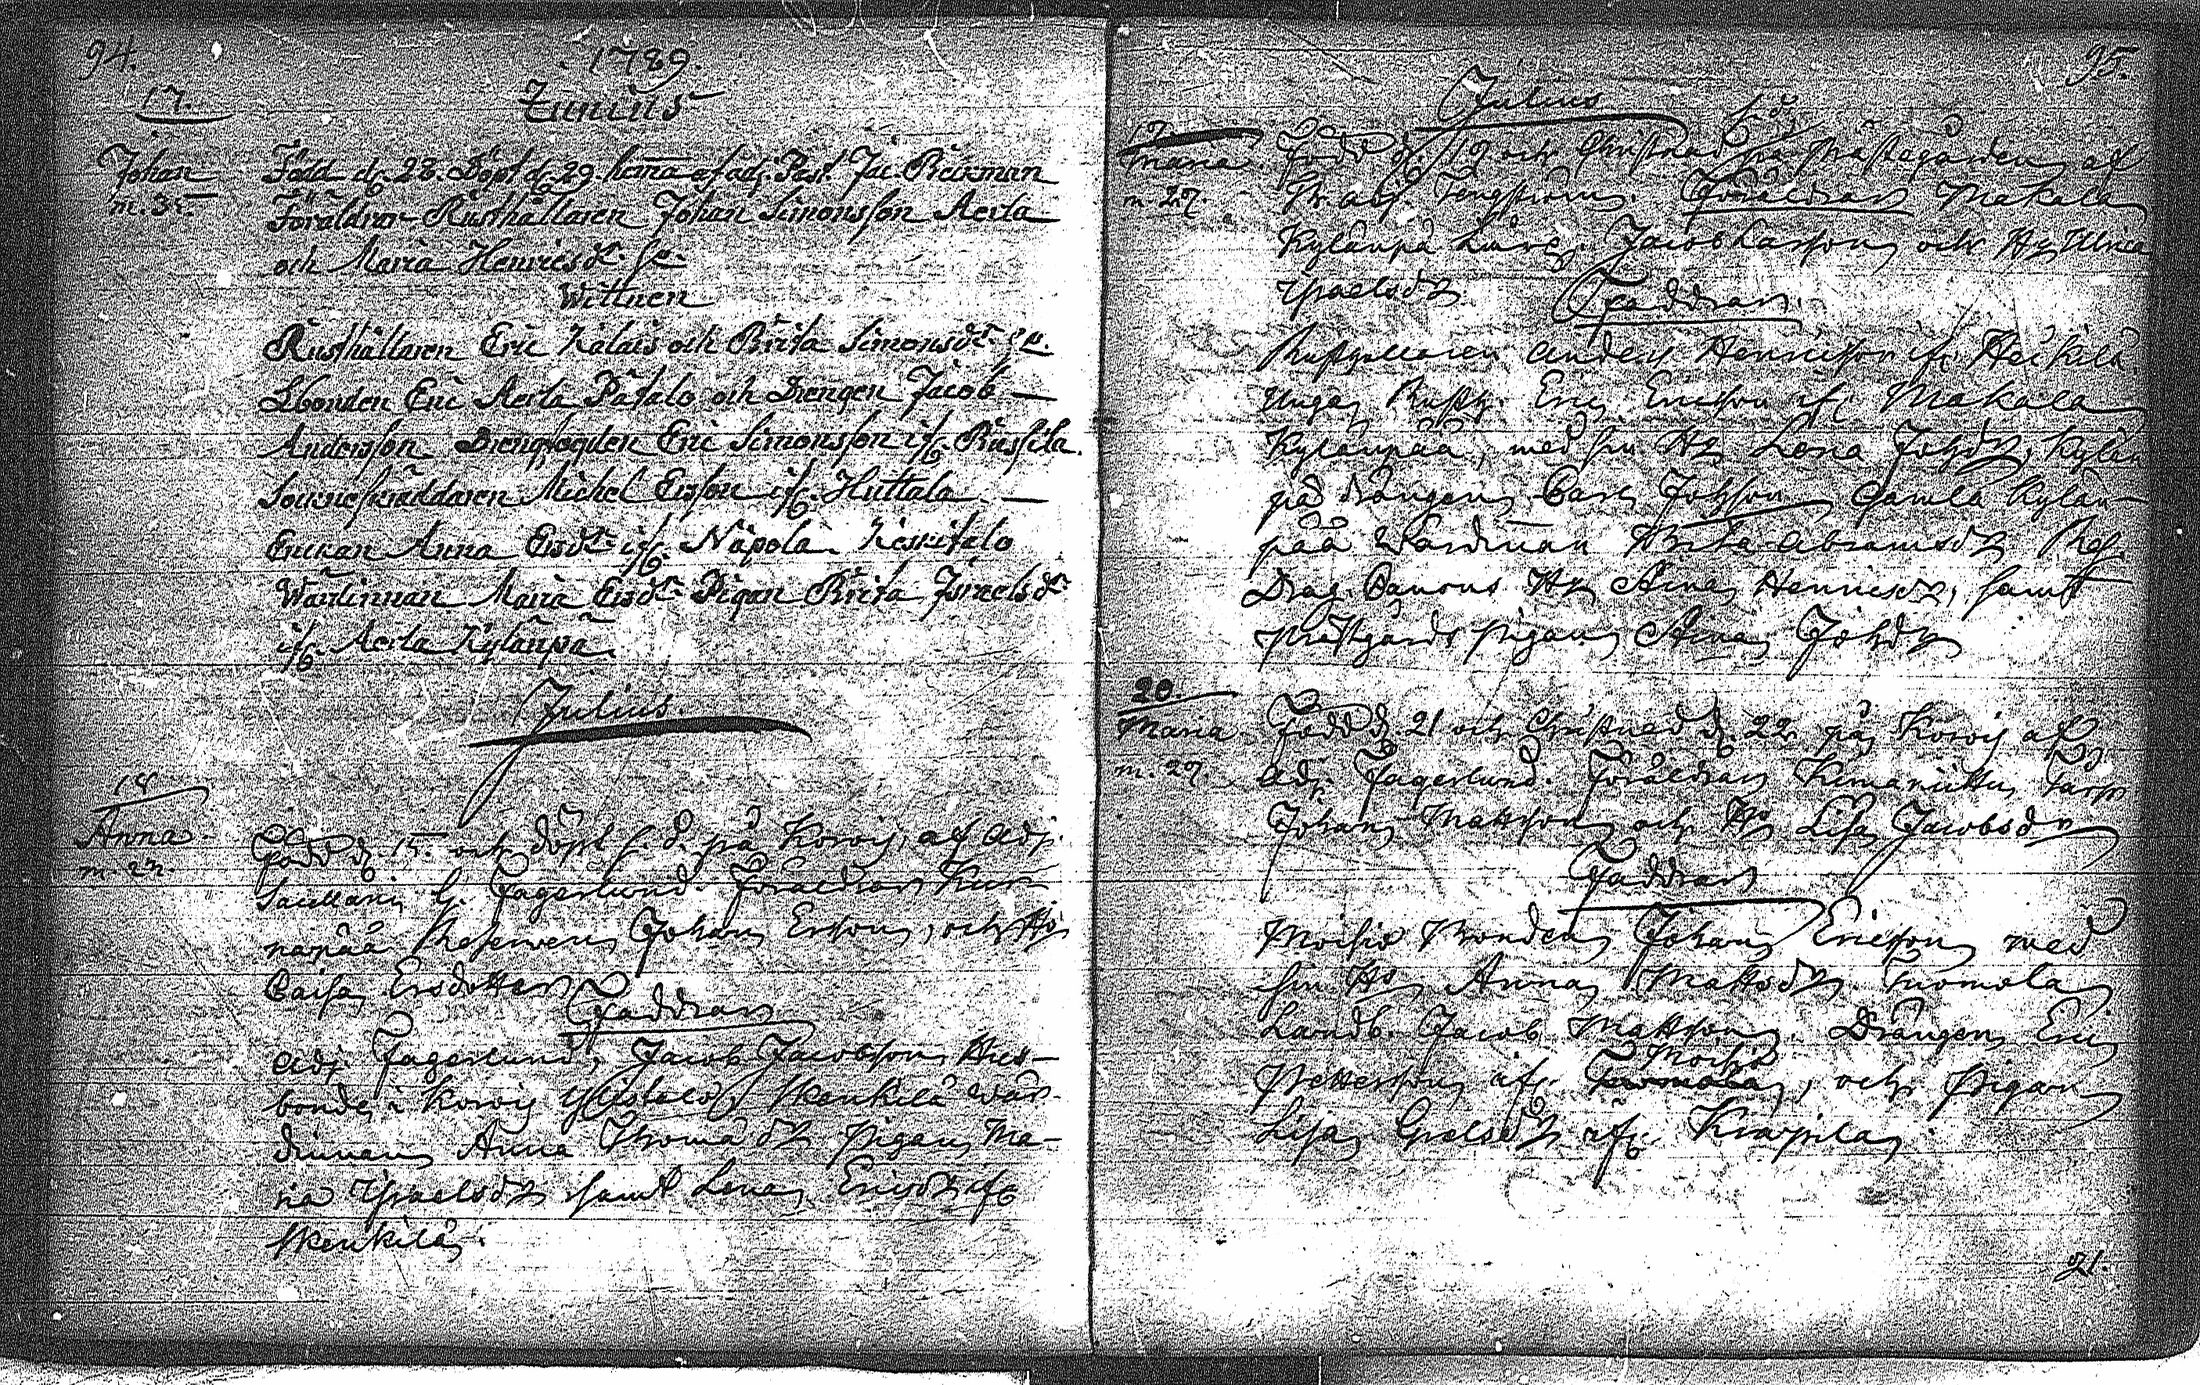 94.
1789.
17.
Junius
Johan
m. 35.
Född d. 28. Döpt d. 29. hema af adj. Past. Jac. Beckman
Föräldrar Rusthållaren Johan Simonsson Aerla
och Maria Henricsdr. ss.
Wittnen
Rusthållaren Eric Kalais och Brita Simonsdr.
Lbonden Eric Aerla Påtalo och Drengen Jacob —
Andersson Drengfogden Eric Simonsson ifr. Russila.
Sockneskräddaren Michel Ersson ifr. Huttala —
Enckan Anna Ersdr. ifr. Näpola. Keskitalo
Wärdinnan Maria Ersdr. Pigan Brita Israelsdr.
ifr. Aerla Kylänpä.
Julius.
18
Anna
m. 27.
Född d. 15. och döpt s. d. på Korois, af Adj.
Sacellani G. Fagerlund. Föräldrar Kur-
napää Reserven Johan Ersson, och Ho
Caisa Ersdotter
Faddrar
Adj. Fagerlund, Jacob Jacobsson Hus-
bonde i Korois Ylistalo, Skenkilä wär-
dinnan Anna Thomædr pigan Ma-
ria Israelsdr samt Lena Ericsdr ifr
Skenkilä.
95.
Julius
s. d.
19.
Maria
m. 27.
Född d. 19 och Christnad på Prästegården af
Hr. Tengström. Föräldrar Makala
Kylänpä Jacob Larsson och H. Ulrica
Israelsdr
Faddrar.
Rusthållaren Anders Henricsson ifr. Heikilä
Unga Rusth. Eric Ericsson ifr Makala
Kylänpää, med sin H. Lena Johsdr, Kylän
pä drängen Carl Johsson Gamla Kylän-
pää Wärdinnan Brita Abramsdr Res.
Drag. Canons H. Stina Henricsdr, samt
prästgårds pigan Stina Johsdr
20.
Maria
m. 27.
Född d. 21 och Christnad d. 22 på Korois af
Adj. Fagerlund. Föräldrar Kimanittu Torp.
Johan Mattsson och H. Lisa Jacobsdr
Faddrar
Moisio Bonden Johan Ericsson med
sin H. Anna Mattsdr. Tuomola
Landb. Jacob Mattsson. Drängen Eric
Pettersson ifr. Moisio, och Pigan
Lisa Grelsdr ifr. Krapila
21.